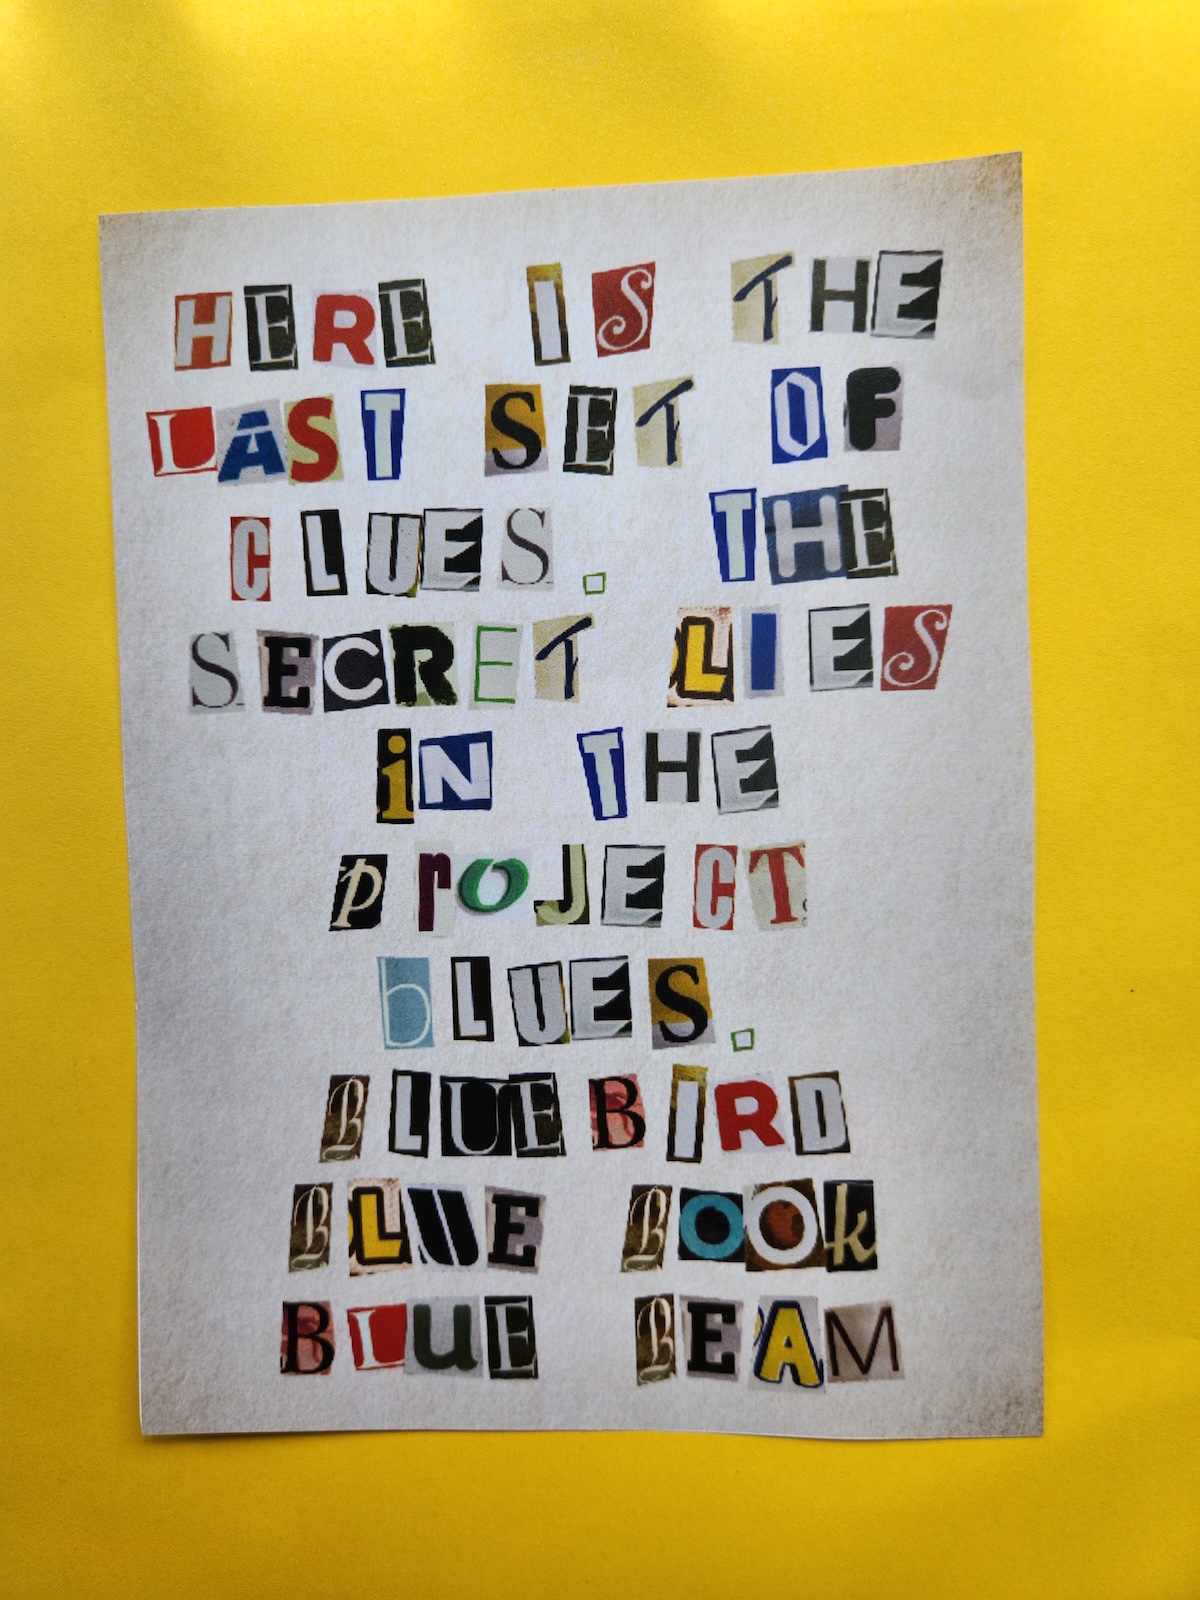 HERE IS THE
LAST SET OF
CLUES. THE
SECRET LIES
iN THE
PrOJECT
bLUES.
BLUEBIRD
BLUE BOOk
BLUE BEAM